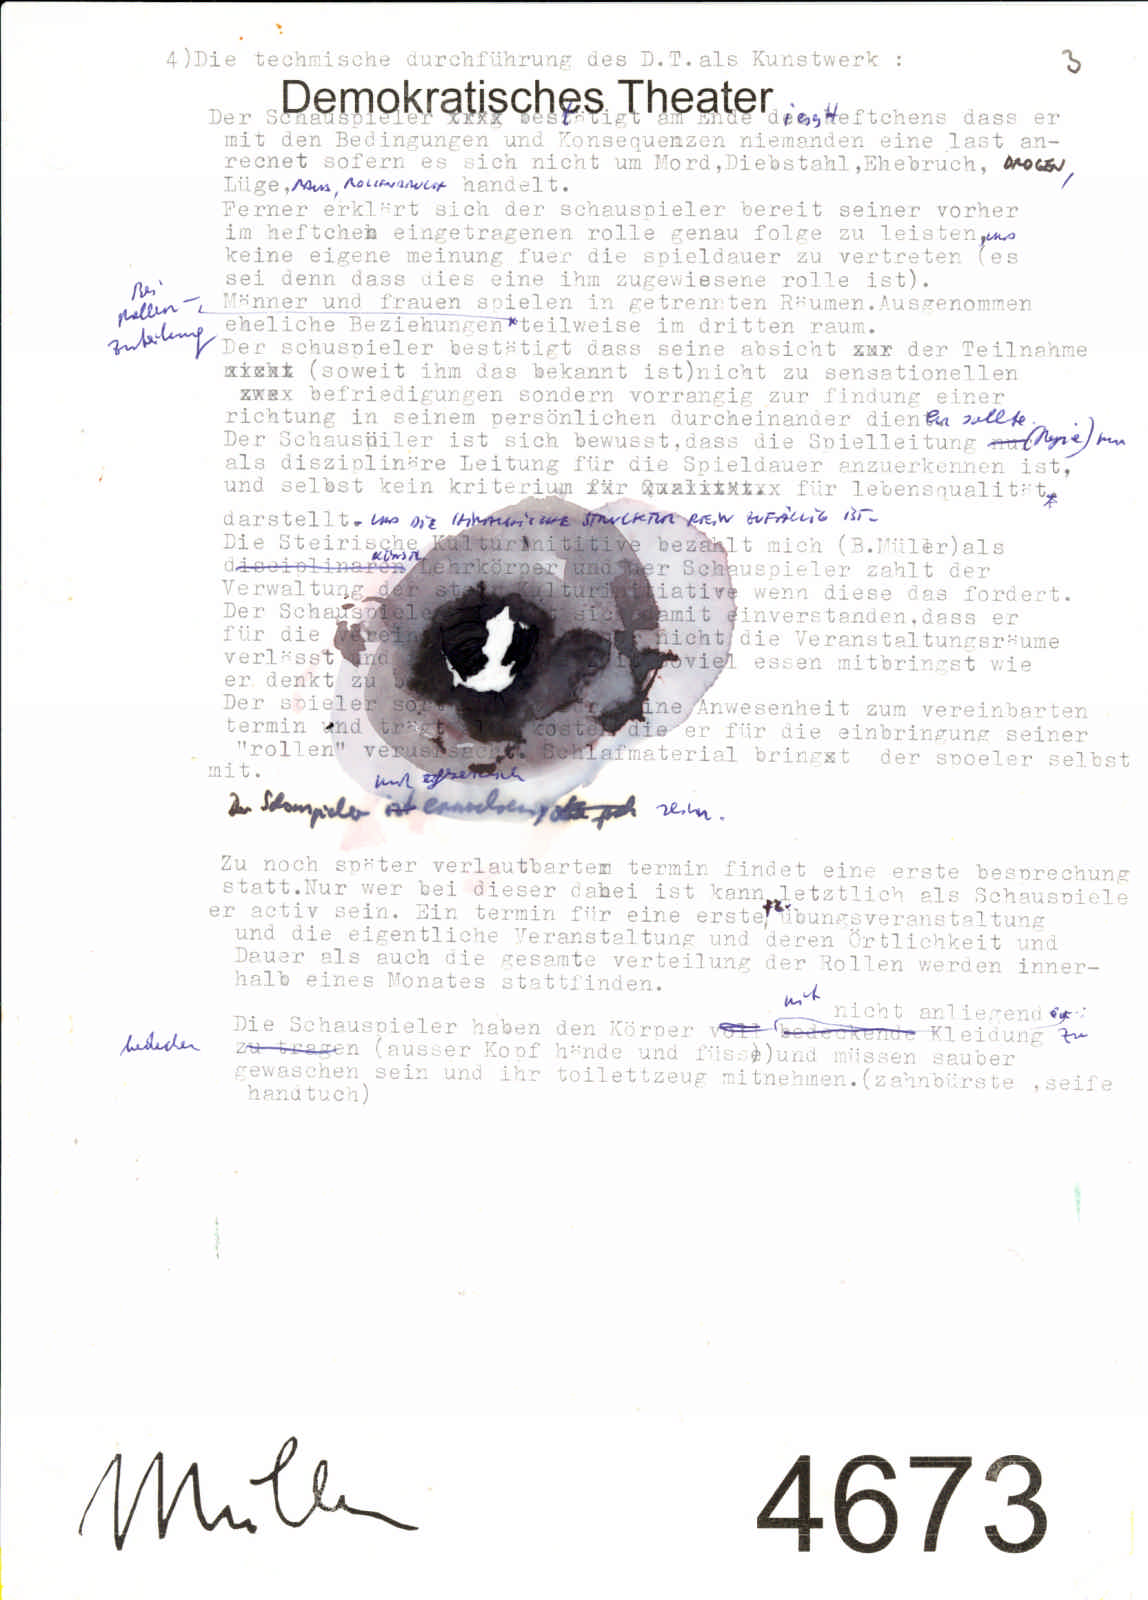 4)Die technische durchführung des D.T.als Kunstwerk :
3
Demokratisches Theater
Der Schauspieler xxxx bestätigt am Ende dieses Heftchens dass er
mit den Bedingungen und Konsequenzen niemanden eine last an-
recnet sofern es sich nicht um Mord,Diebstahl,Ehebruch, DROGEN,
Lüge, handelt.
Ferner erklärt sich der schauspieler bereit seiner vorher
im heftchen eingetragenen rolle genau folge zu leisten, und
keine eigene meinung fuer die spieldauer zu vertreten (es
sei denn dass dies eine ihm zugewiesene rolle ist).
Bei
Rollen-
zuteilung
Männer und frauen spielen in getrennten Räumen.Ausgenommen
eheliche Beziehungen*teilweise im dritten raum.
Der schuspieler bestätigt dass seine absicht xxx der Teilnahme
xxxxx (soweit ihm das bekannt ist)nicht zu sensationellen
zwex befriedigungen sondern vorrangig zur findung einer
richtung in seinem persönlichen durcheinander dienen sollte.
Der Schauspiler ist sich bewusst,dass die Spielleitung (Regie) nur
als disziplinäre Leitung für die Spieldauer anzuerkennen ist,
und selbst kein kriterium für Qualitätxx für lebensqualität
darstellt. UND DIE HIERARCHISCHE STRUKTUR REIN ZUFÄLLIG IST.
Die Steirische Kulturinititive bezahlt mich (B.Müler)als
disciplinaren Lehrkörper und der Schauspieler zahlt der
Verwaltung der Kulturinitiative wenn diese das fordert.
Der Schauspieler sich damit einverstanden,dass er
für die nicht die Veranstaltungsräume
verlässt und soviel essen mitbringst wie
er denkt zu
Der spieler Anwesenheit zum vereinbarten
termin und trägt kosten die er für die einbringung seiner
"rollen" verursacht. Schlafmaterial bringxt der spoeler selbst
mit.
Der Schauspieler ist erwachsen, sein.
Zu noch später verlautbartem termin findet eine erste besprechung
statt.Nur wer bei dieser dabei ist kann letztlich als Schauspiele
er activ sein. Ein termin für eine erste übungsveranstaltung
und die eigentliche Veranstaltung und deren Örtlichkeit und
Dauer als auch die gesamte verteilung der Rollen werden inner-
halb eines Monates stattfinden.
mit nicht anliegend
Die Schauspieler haben den Körper voll bedeckende Kleidung zu
bedecken
zu tragen (ausser Kopf hände und füsse)und müssen sauber
gewaschen sein und ihr toilettzeug mitnehmen.(zahnbürste ,seife
handtuch)
Müller
4673